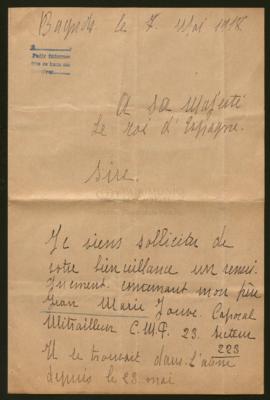 le 7. Mai 1918.
A sa Majesté
Le roi d'Espagne.
Sire.
Je viens solliciter de
votre bienveillance un rensei-
gnement concernant mon père
Jean Marie Jouve. Caporal
Mitrailleur C.M.P. 23. Secteur
223
Il se trouvait dans l'aisne
depuis le 23 mai